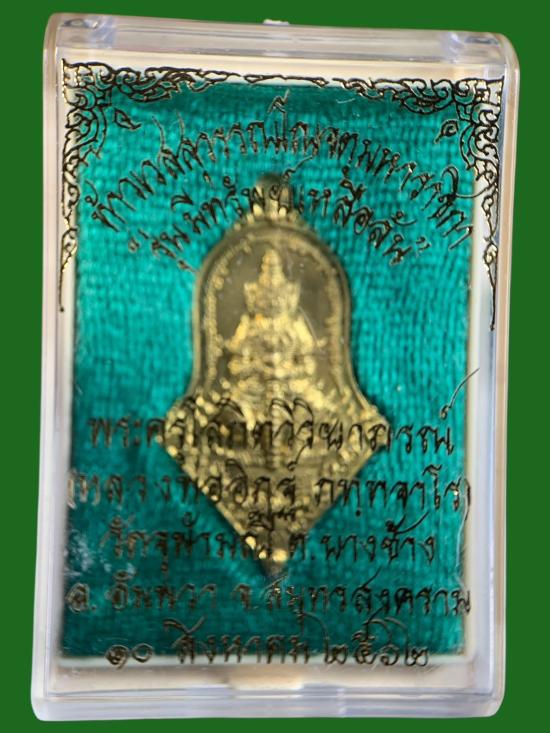 ท้าวเวสสุวรรณโณจตุมหาราชิกา
รุ่น มีทรัพย์เหลือล้น
พระครูโสภิตวิริยาภรณ์
(หลวงพ่ออิฏฐ์ ภทฺทจาโร)
วัดจุฬามณี ต.บางช้าง
อ. อัมพวา จ.สมุทรสงคราม
๑๐ สิงหาคม ๒๕๖๒